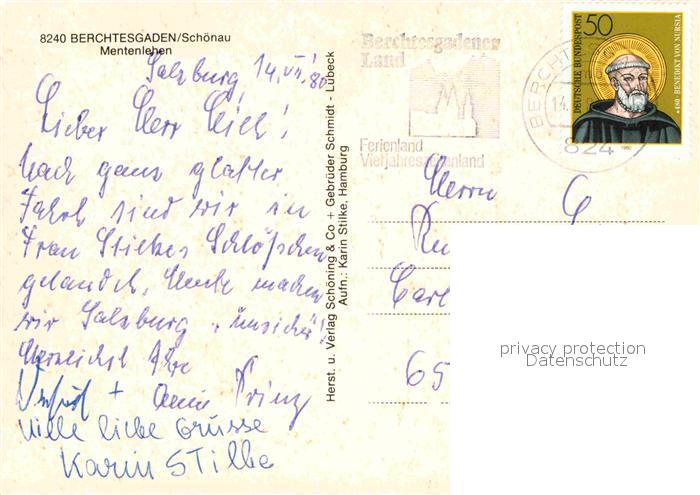 8240 BERCHTESGADEN/Schönau
Mentenlehen
Salzburg, 14.VII.80
Lieber Herr
Nach ganz glatter
Fahrt sind wir in
Frau Stilkes Schlößchen
gelandet, Heute machen
wir Salzburg
Herzlichst Ihr
+ Prinz
Viele liebe Grüsse
Karin Stilke
Herst. u. Verlag Schöning & Co + Gebrüder Schmidt - Lübeck
Aufn.: Karin Stilke, Hamburg
Berchtesgadener
Land
Ferienland
Vierjahreszeitenland
BERCHT
14.
824
50
DEUTSCHE BUNDESPOST
*480 · BENEDIKT VON NURSIA
1980
Herrn
Carl
65
privacy protection
Datenschutz